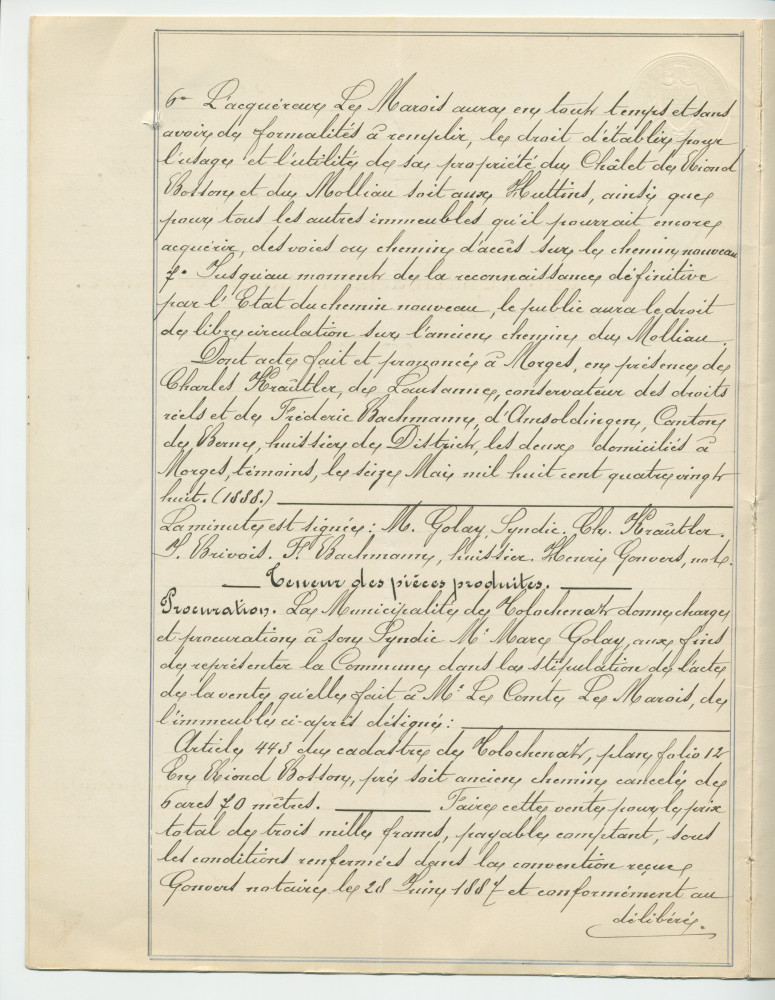 6° L'acquéreur Le Marois aura en tout temps et sans
avoir de formalités à remplir, le droit d'établir pour
l'usage et l'utilité de sa propriété du Châlet de Riond
Bosson et du Molliau soit aux Huttins, ainsi que
pour tous les autres immeubles qu'il pourrait encore
acquérir, des voies ou chemin d'accès sur le chemin nouveau
7° Jusqu'au moment de la reconnaissance définitive
par l'Etat du chemin nouveau, le public aura le droit
de libre circulation sur l'ancien chemin du Molliau.
Dont acte fait et prononcé à Morges, en présence de
Charles Kraütler, de Lausanne, conservateur des droits
réels et de Fréderic Bachmann, d'Amsoldingen, Canton
de Berne, huissier de District, les deux domiciliés à
Morges, témoins, le seize Mai mil huit cent quatre vingt
huit. (1888.)
La minute est signée: M. Golay, Syndic. Ch. Kraütler.
J. Brivois. F. Bachmann, huissier. Henri Gonvers, not.
Teneur des pièces produites.
Procuration. La Municipalité de Tolochenaz donne charge
et procuration à son Syndic Mr Marc Golay, aux fins
de représenter la Commune dans la stipulation de l'acte
de la vente qu'elle fait à Mr Le Comte Le Marois, de
l'immeuble ci-après désigné:
Article 443 du cadastre de Tolochenaz, plan folio 12
En Riond Bosson, pré soit ancien chemin cancelé de
6 ares 70 mètres. Faire cette vente pour le prix
total de trois mille francs, payable comptant, sous
les conditions renfermées dans la convention reçue
Gonvers notaire le 28 Juin 1887 et conformément au
délibéré.